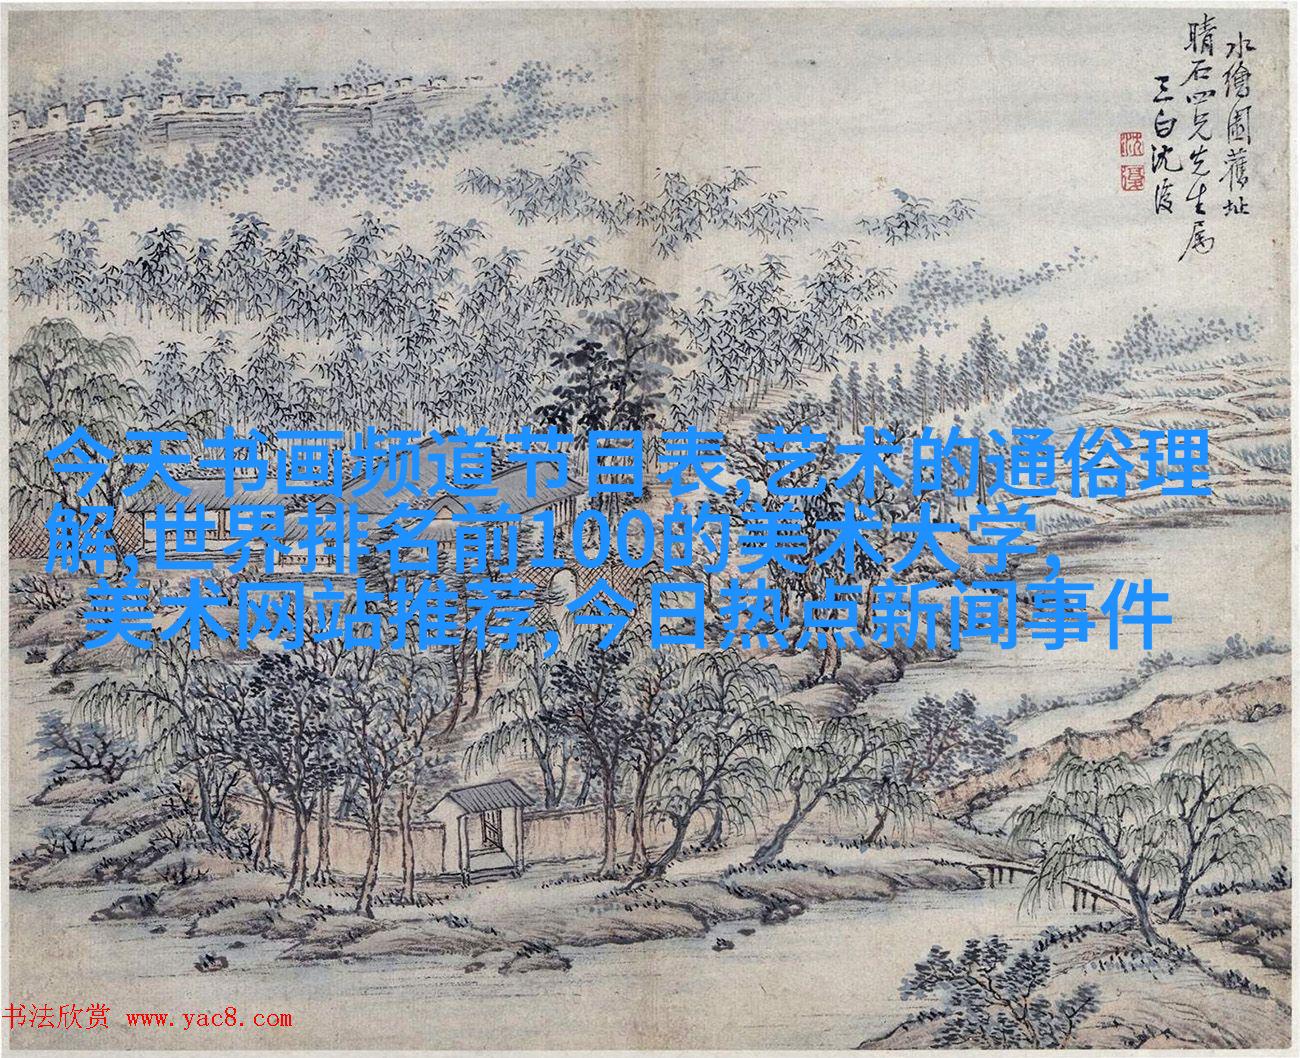 水繪園舊址
晴石四兄先生属
三白沈復
沈
復
今天书画频道节目表,艺术的通俗理
解,世界排名前100的美术大学,
美术网站推荐,今日热点新闻事件
书法欣赏 www.yac8.com